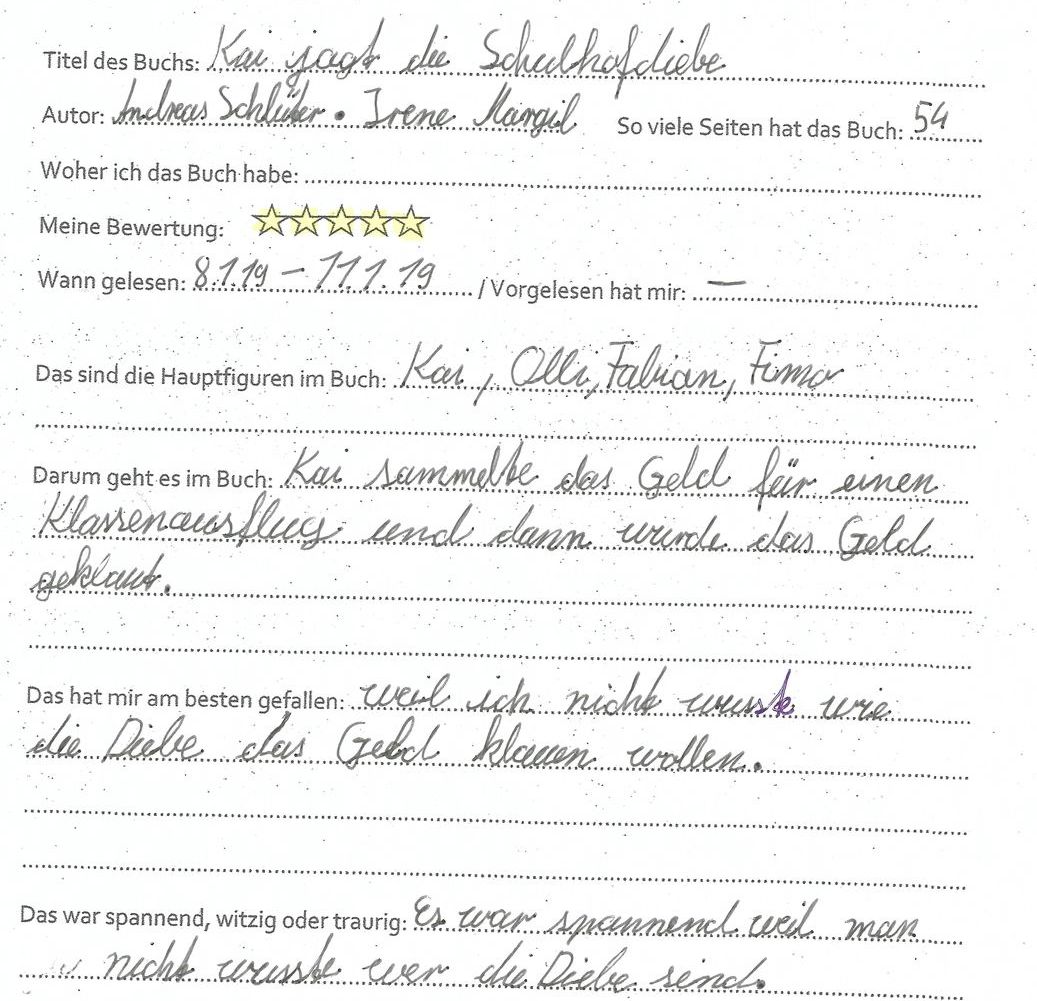 Titel des Buchs: Kai jagt die Schulhofdiebe
Autor: Andreas Schlüter • Irene Margil So viele Seiten hat das Buch: 54
Woher ich das Buch habe:
Meine Bewertung: ☆☆☆☆☆
Wann gelesen: 8.1.19 – 11.1.19 / Vorgelesen hat mir: —
Das sind die Hauptfiguren im Buch: Kai, Olli, Fabian, Fimo
Darum geht es im Buch: Kai sammelte das Geld für einen
Klassenausflug und dann wurde das Geld
geklaut.
Das hat mir am besten gefallen: weil ich nicht wuste wie
die Diebe das Geld klauen wollen.
Das war spannend, witzig oder traurig: Es war spannend weil man
nicht wusste wer die Diebe sind.